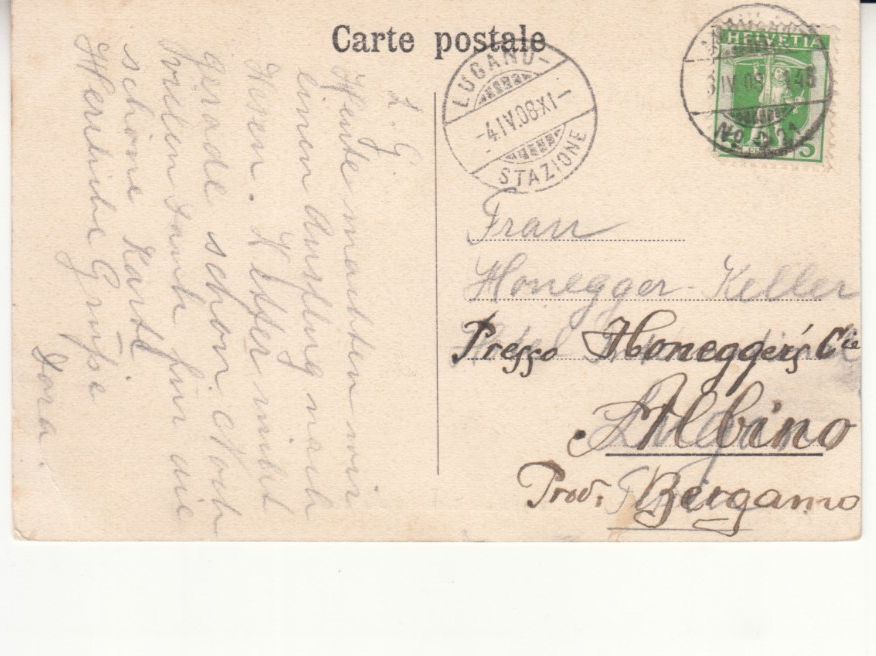 Carte postale
LUGANO
-4.IV.08XI-
STAZIONE
HELVETIA
IV.08
5
L. G.
Heute machten wir
einen Ausflug nach
Horn. Wetter nicht
gerade schön. Noch
Vielen Dank für die
schöne Karte
Herzliche Grüße
Dora.
Frau
Honegger-Keller
Presso Honegger's Cie
Albino
Prov. Bergamo